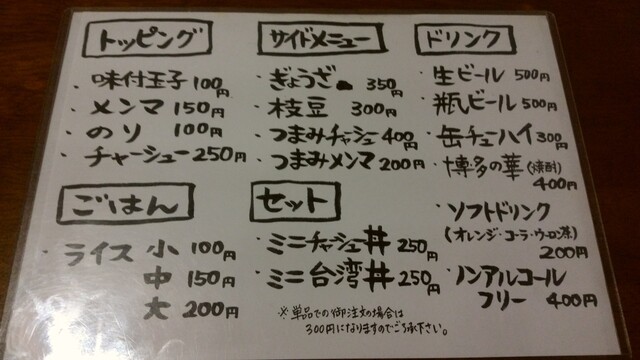 トッピング
・味付玉子 100円
・メンマ 150円
・のり 100円
・チャーシュー 250円
ごはん
・ライス 小 100円
中 150円
大 200円
サイドメニュー
・ぎょうざ 350円
・枝豆 300円
・つまみチャーシュ 400円
・つまみメンマ 200円
セット
・ミニチャーシュ丼 250円
・ミニ台湾丼 250円
※単品での御注文の場合は
300円になりますのでご了承下さい。
ドリンク
・生ビール 500円
・瓶ビール 500円
・缶チューハイ 300円
・博多の華(焼酎)
400円
・ソフトドリンク
(オレンジ・コーラ・ウーロン茶)
200円
・ノンアルコール
フリー 400円